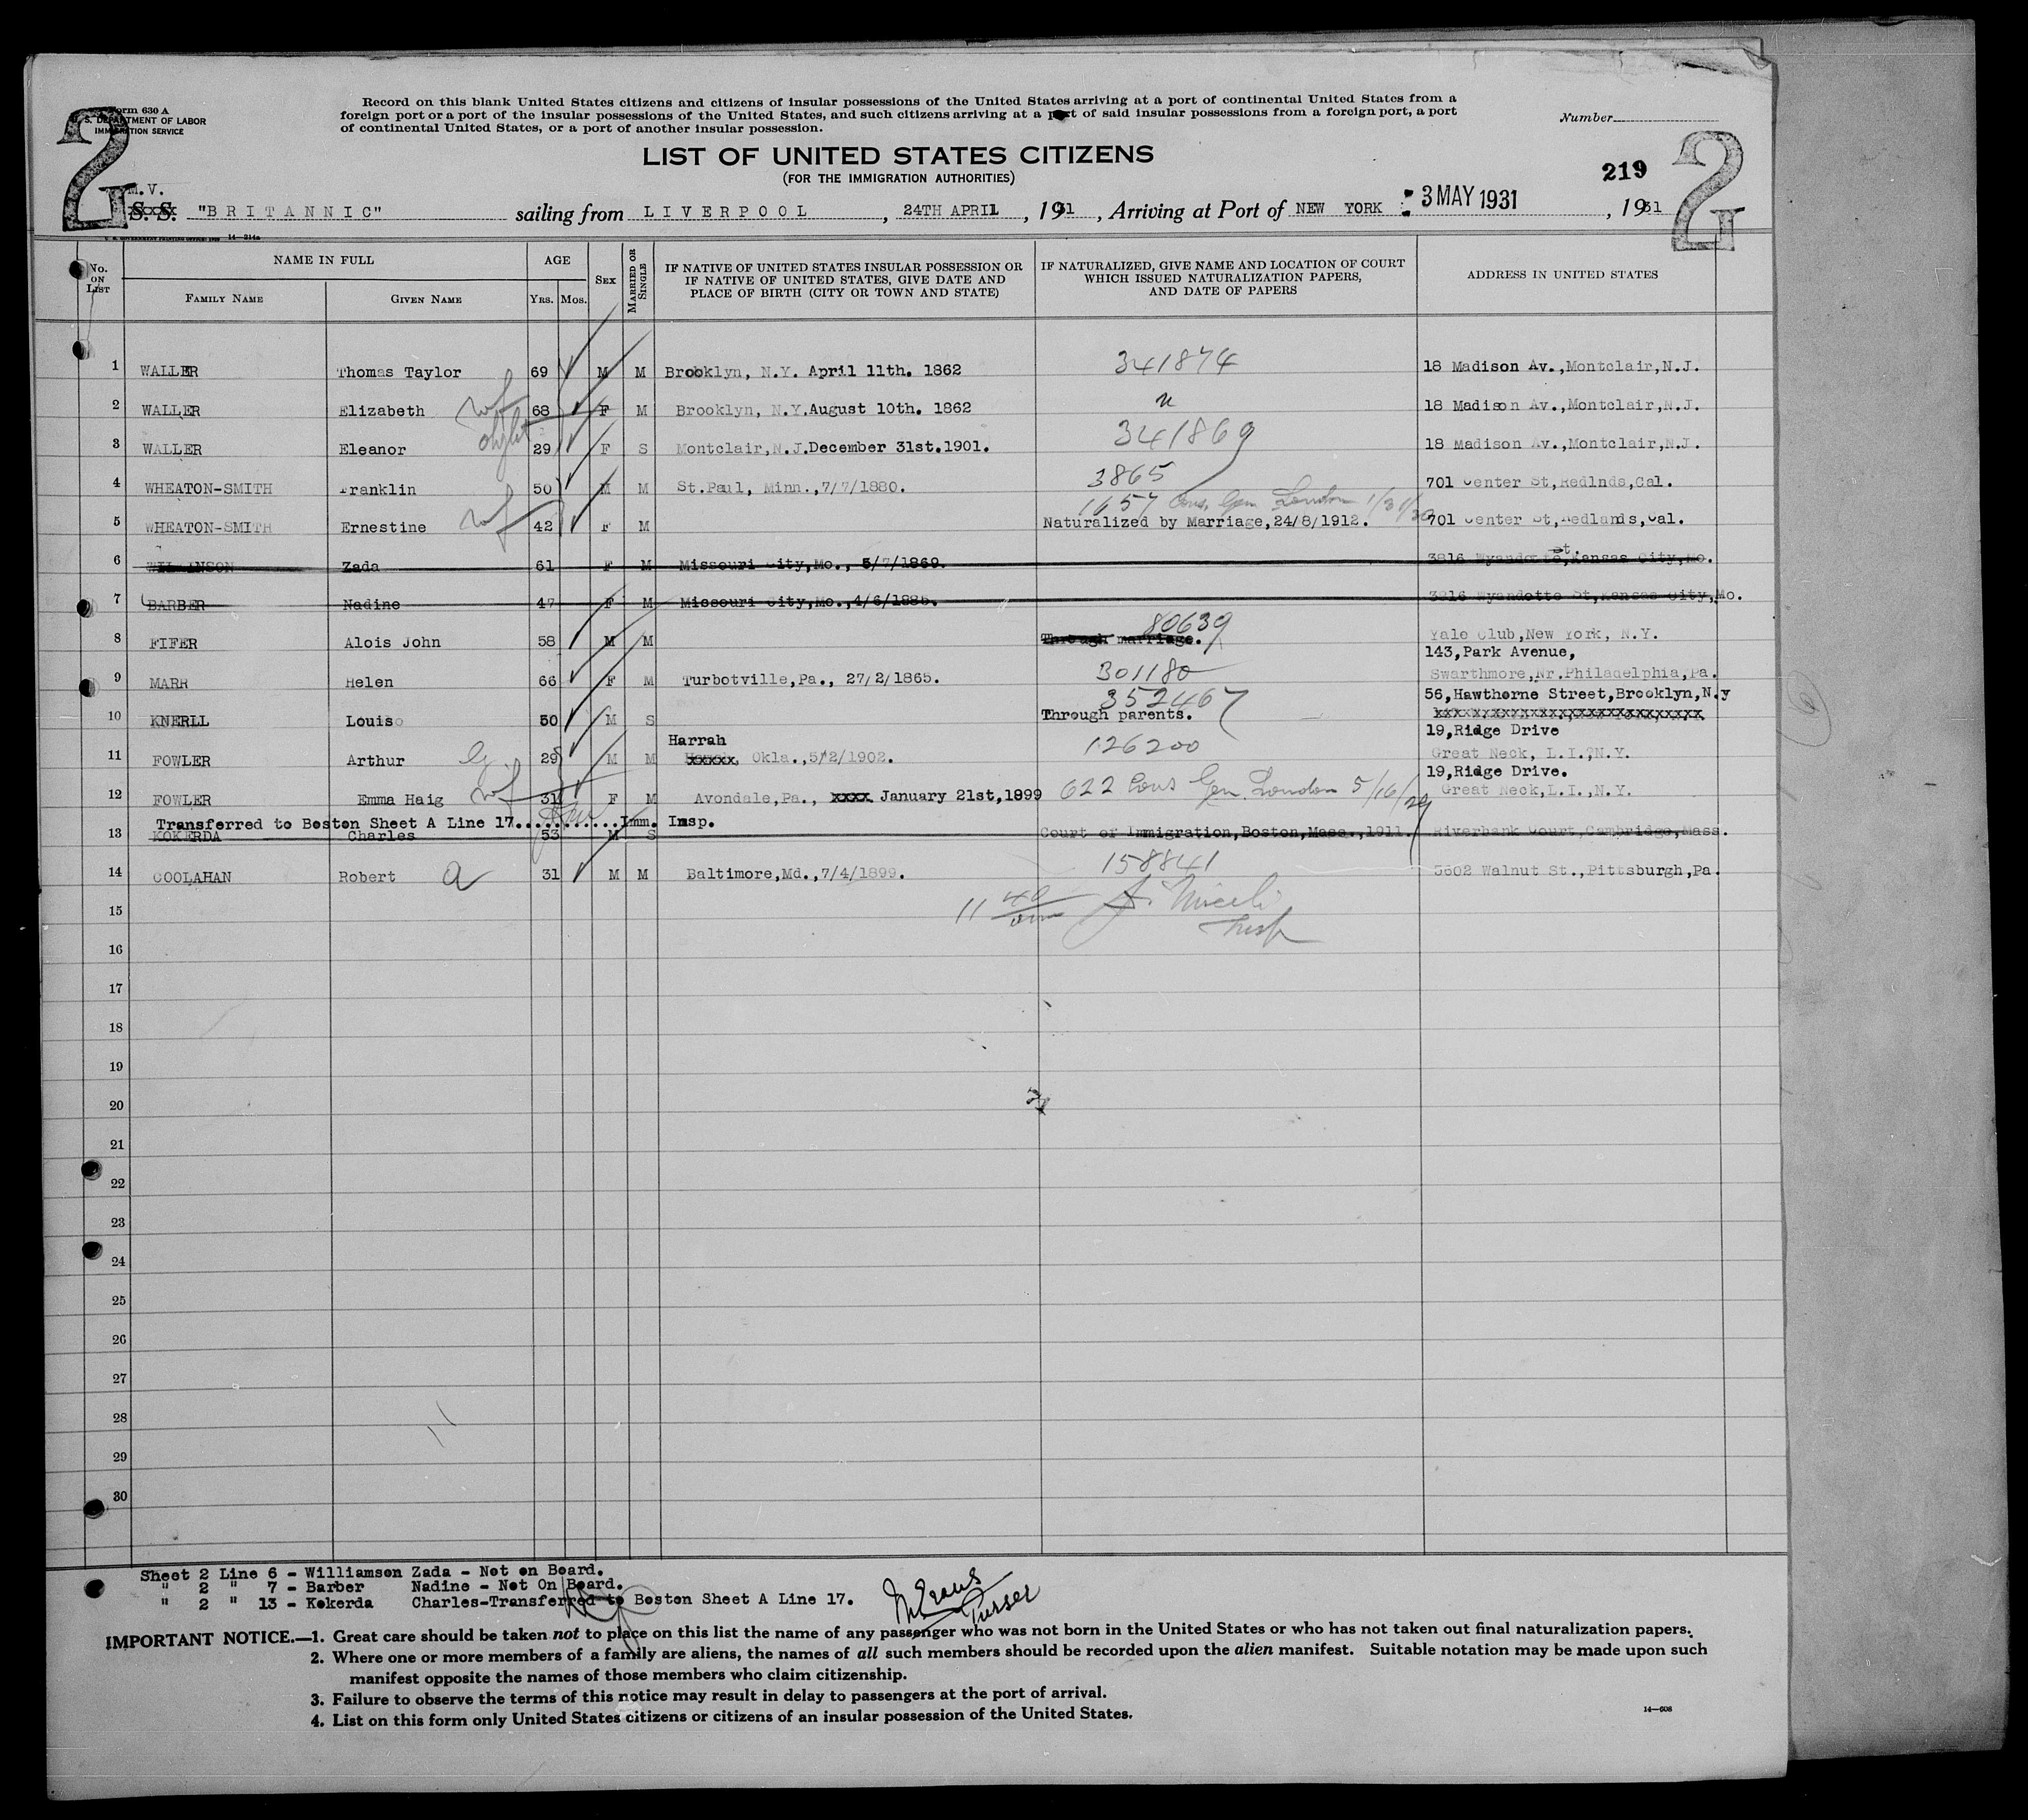 Form 630 A
U. S. DEPARTMENT OF LABOR
IMMIGRATION SERVICE
2
Record on this blank United States citizens and citizens of insular possessions of the United States arriving at a port of continental United States from a
foreign port or a port of the insular possessions of the United States, and such citizens arriving at a port of said insular possessions from a foreign port, a port
of continental United States, or a port of another insular possession.
Number
LIST OF UNITED STATES CITIZENS
(FOR THE IMMIGRATION AUTHORITIES)
219
2
M.V.
S. S. "BRITANNIC" sailing from LIVERPOOL, 24TH APRIL, 1931, Arriving at Port of NEW YORK 3 MAY 1931, 1931
U. S. GOVERNMENT PRINTING OFFICE: 1929 14—214a
No. ON LIST
NAME IN FULL
FAMILY NAME GIVEN NAME
AGE
YRS. MOS.
SEX
MARRIED OR SINGLE
IF NATIVE OF UNITED STATES INSULAR POSSESSION OR
IF NATIVE OF UNITED STATES, GIVE DATE AND
PLACE OF BIRTH (CITY OR TOWN AND STATE)
IF NATURALIZED, GIVE NAME AND LOCATION OF COURT
WHICH ISSUED NATURALIZATION PAPERS,
AND DATE OF PAPERS
ADDRESS IN UNITED STATES
1 WALLER Thomas Taylor 69 M M Brooklyn, N.Y. April 11th. 1862 341874 18 Madison Av.,Montclair,N.J.
2 WALLER Elizabeth wf 68 F M Brooklyn, N.Y.August 10th. 1862 " 18 Madison Av.,Montclair,N.J.
3 WALLER Eleanor 29 F S Montclair,N.J.December 31st.1901. 341869 18 Madison Av.,Montclair,N.J.
4 WHEATON-SMITH Franklin 50 M M St.Paul, Minn.,7/7/1880. 3865 701 Center St,Redlnds,Cal.
1657 Cons. Gen London
5 WHEATON-SMITH Ernestine wf 42 F M Naturalized by Marriage,24/8/1912. 701 Center St,Redlands,Cal.
6 Zada 61 F M Missouri City,Mo., 5/7/1869. 3816 Wyandotte St.,Kansas City,Mo.
7 BARBER Nadine 47 F M Missouri City,Mo.,4/6/1885. 3816 Wyandotte St,Kansas City,Mo.
80639
8 FIFER Alois John 58 M M Through marriage. Yale Club,New York, N.Y.
143,Park Avenue,
9 MARR Helen 66 F M Turbotville,Pa., 27/2/1865. 301180 Swarthmore,Nr.Philadelphia,Pa.
352467 56,Hawthorne Street,Brooklyn,N.y
10 KNERLL Louis 50 M S Through parents. xxxxxxxxxxxxxxxxxxxxxxxxxx
19,Ridge Drive
Harrah
11 FOWLER Arthur 29 M M xxxxx, Okla.,5/2/1902. 126200 Great Neck, L.I.,N.Y.
19,Ridge Drive.
12 FOWLER Emma Haig wf 31 F M Avondale,Pa., xxxx January 21st,1899 622 Cons Gen. London 5/16/29 Great Neck,L.I.,N.Y.
Transferred to Boston Sheet A Line 17............Imm. Insp.
13 KOKERDA Charles 53 M S Court of Immigration,Boston,Mass.,1911. Riverbank Court,Cambridge,Mass.
14 COOLAHAN Robert a 31 M M Baltimore,Md.,7/4/1899. 158841 5602 Walnut St.,Pittsburgh,Pa.
15 11 40 am Insp
16
17
18
19
20
21
22
23
24
25
26
27
28
29
30
Sheet 2 Line 6 - Williamson Zada - Not on Board.
" 2 " 7 - Barber Nadine - Not On Board.
" 2 " 13 - Kokerda Charles-Transferred to Boston Sheet A Line 17.
Purser
IMPORTANT NOTICE.—1. Great care should be taken not to place on this list the name of any passenger who was not born in the United States or who has not taken out final naturalization papers.
2. Where one or more members of a family are aliens, the names of all such members should be recorded upon the alien manifest. Suitable notation may be made upon such
manifest opposite the names of those members who claim citizenship.
3. Failure to observe the terms of this notice may result in delay to passengers at the port of arrival.
4. List on this form only United States citizens or citizens of an insular possession of the United States.
14—608